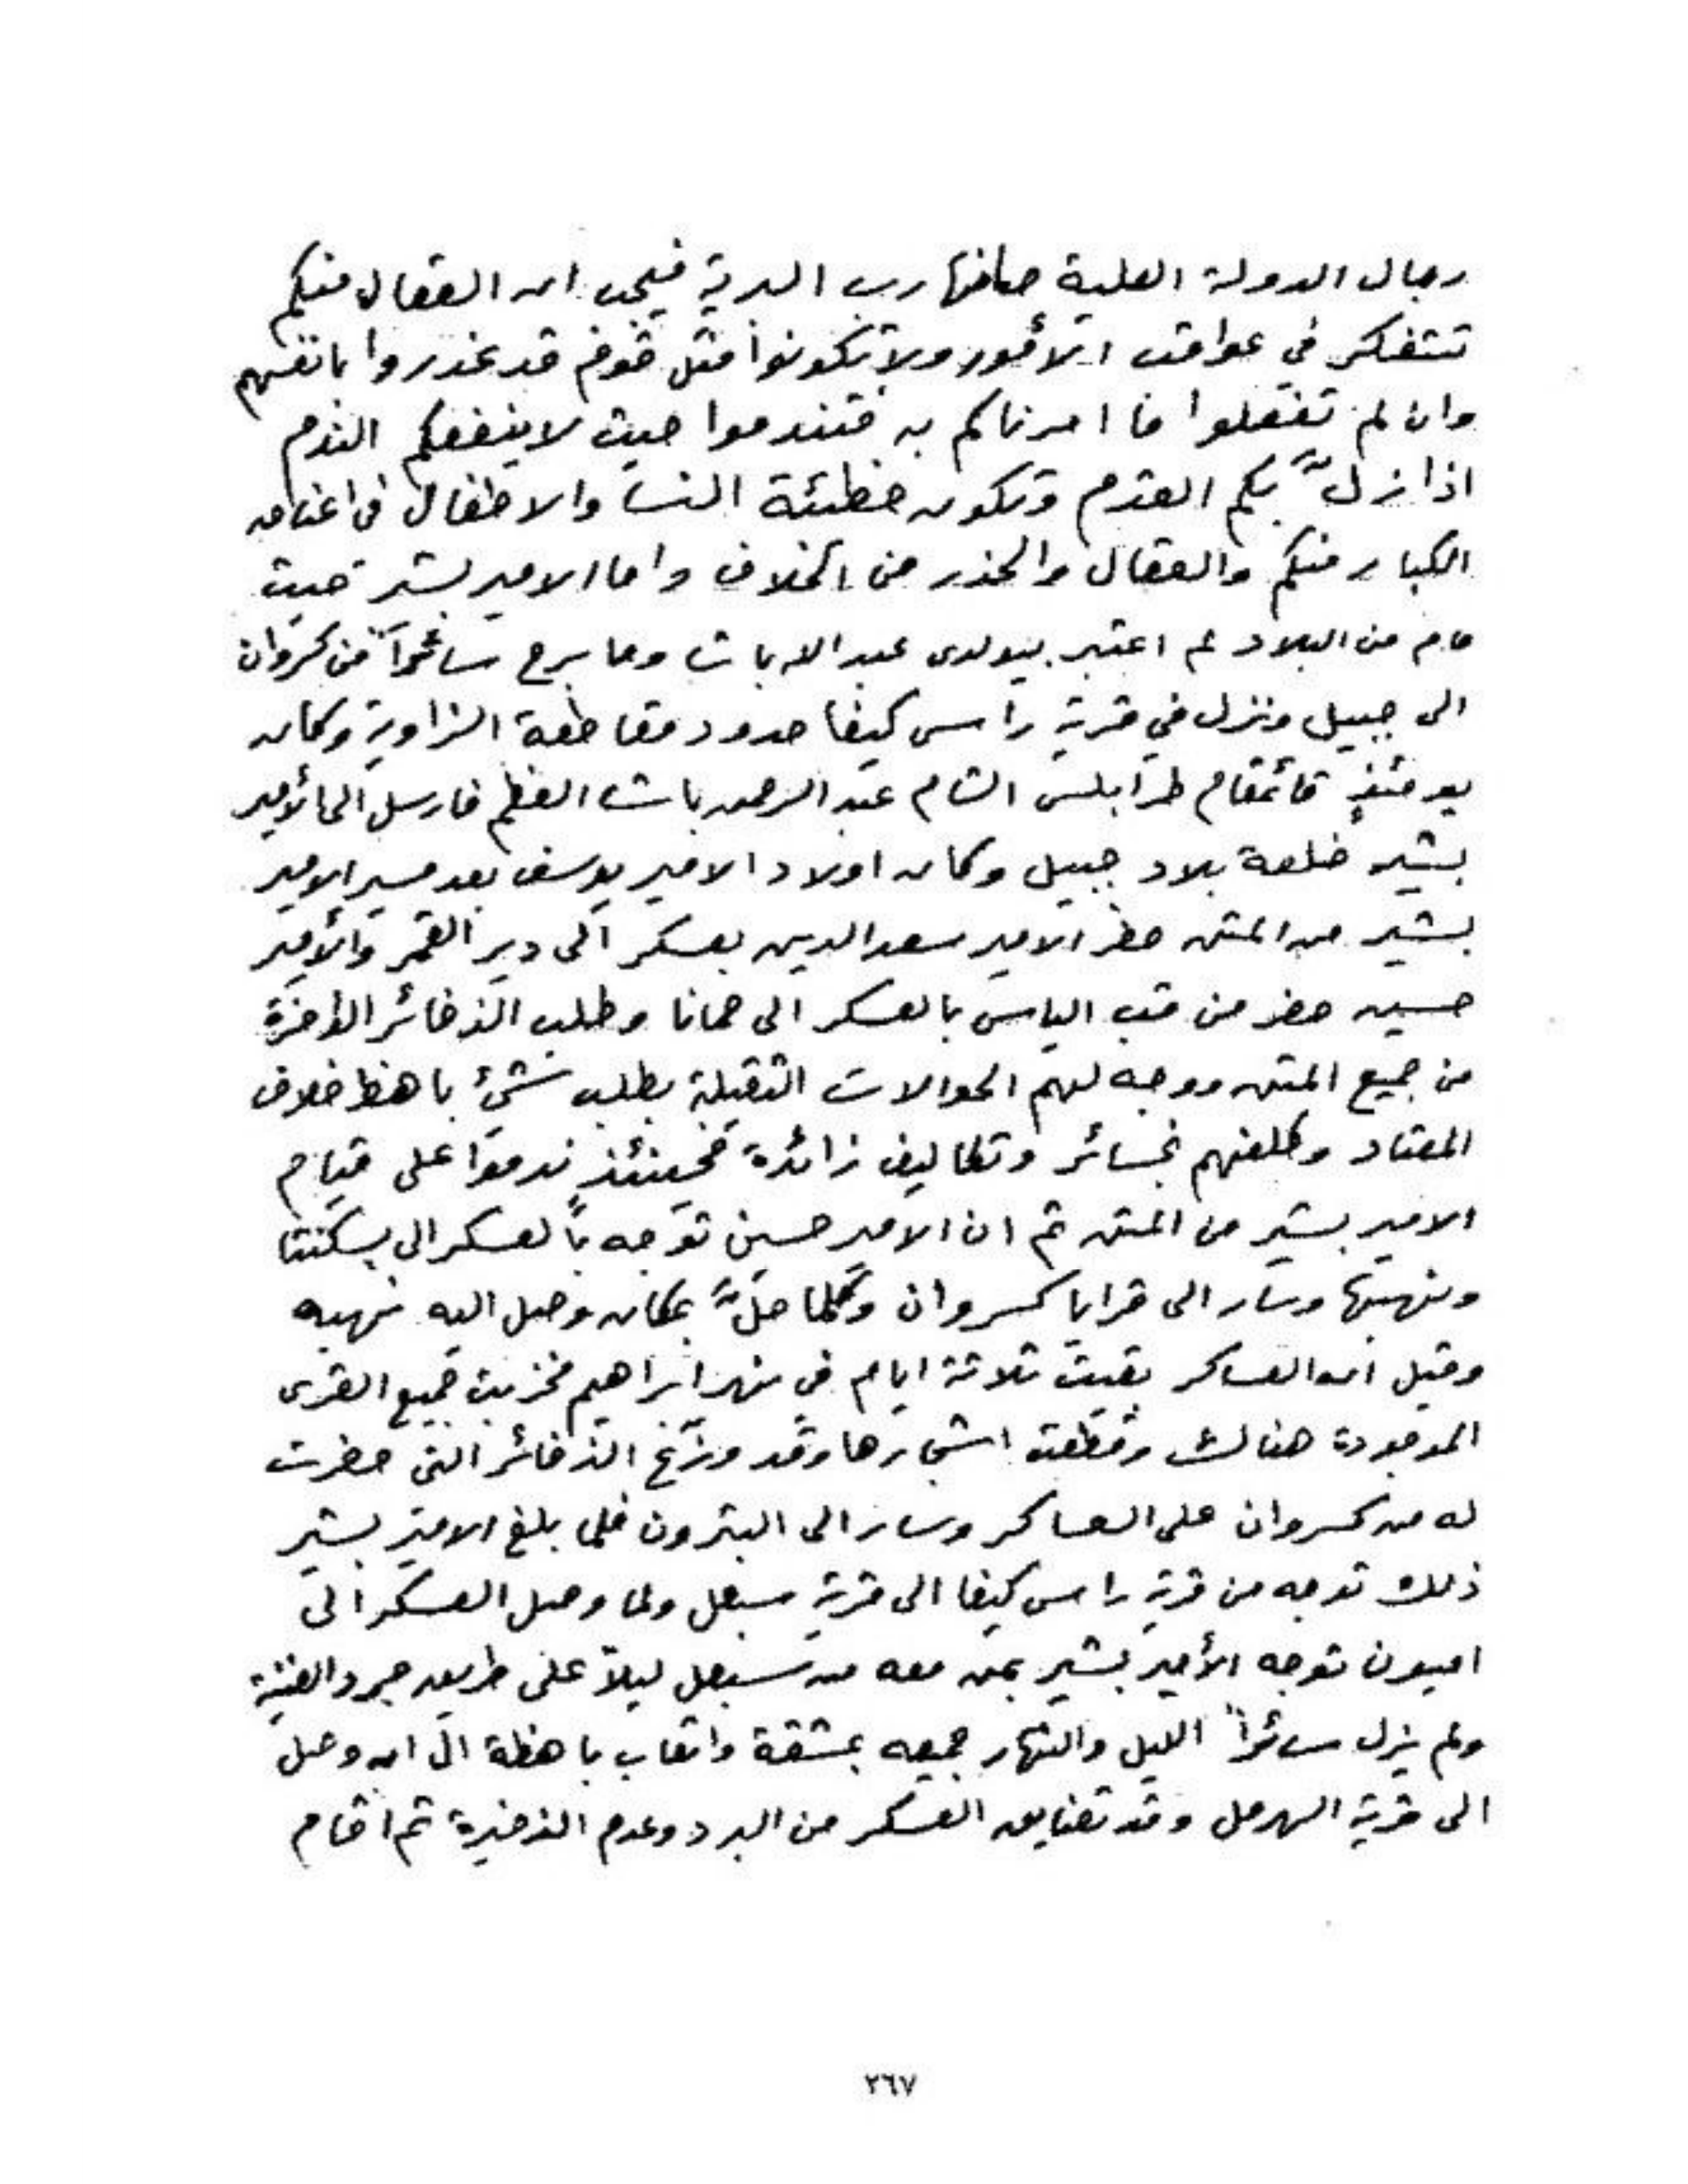 رجال الدولة العلية صانها رب البرية فيجب ان العقال منكم
تتفكر في عواقب الأمور ولا تكونوا مثل قوم قد غدروا بانفسهم
وان لم تفعلوا ما امرناكم به فتندموا حيث لا ينفعكم الندم
اذا زلّ بكم القدم وتكون خطيئة النسا والاطفال في اعناق
الكبار منكم والعقال والحذر من الخلاف واما الامير بشير حيث
قام من البلاد لم اعتبر بيولدى عبد الله باشا وما برح سائراً من كسروان
الى جبيل ونزل في قرية راس كيفا حدود مقاطعة الزاوية وكان
يومئذٍ قائمقام طرابلس الشام عبد الرحمن باشا العظم فارسل الى الأمير
بشير خلعة بلاد جبيل وكان اولاد الامير يوسف بعد مسير الامير
بشير من المتن حضر الامير سعد الدين بعسكر الى دير القمر والأمير
حسين حضر من قب الياس بالعسكر الى حمانا وطلب الذخائر الوافرة
من جميع المتن ووجه لهم الحوالات الثقيلة بطلب شيءٍ باهظ خلاف
المعتاد وكلفهم خسائر وتكاليف زائدة فحينئذٍ ندموا على قيام
الامير بشير من المتن ثم ان الامير حسين توجه بالعسكر الى بسكنتا
ونهبها وسار الى قرايا كسروان وكلما حلّ بمكان وصل اليه نهبه
وقيل ان العساكر بقيت ثلاثة ايام في نهر ابراهيم فخربت جميع القرى
الموجودة هنالك وقطعت اشجارها وقد وزّع الذخائر التى حضرت
له من كسروان على العساكر وسار الى البترون فلما بلغ الامير بشير
ذلك توجه من قرية راس كيفا الى قرية سبعل ولما وصل العسكر الى
اميون توجه الأمير بشير بمن معه من سبعل ليلاً على طريق جرد الضنية
ولم يزل سائراً الليل والنهار جميعه بمشقة واتعاب باهظة الى ان وصل
الى قرية الهرمل وقد تضايق العسكر من البرد وعدم الذخيرة ثم اقام
٢٦٧